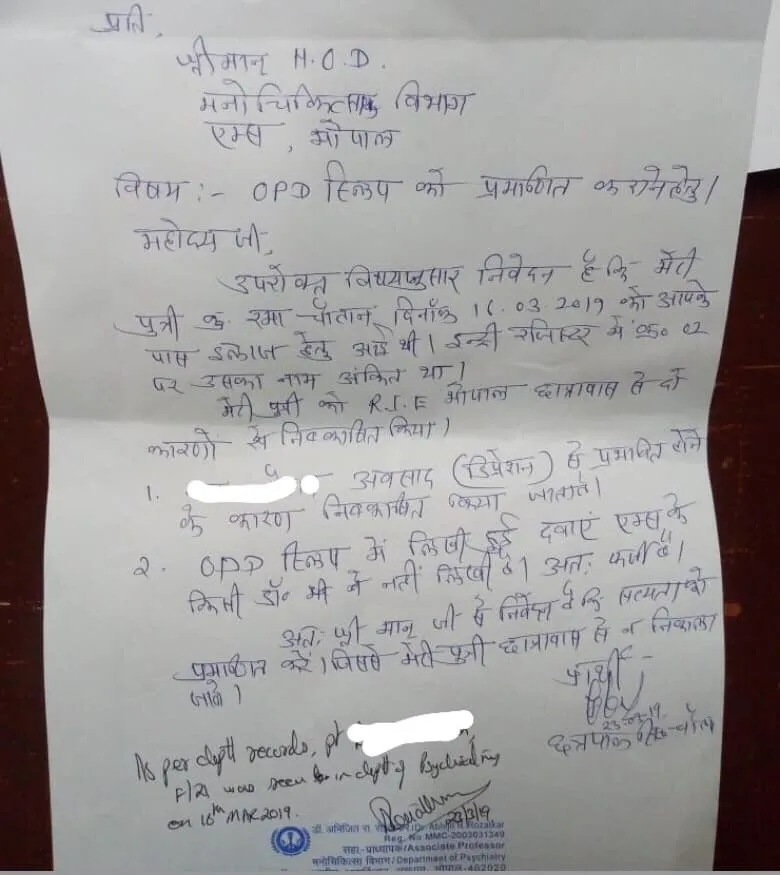 प्रति,
श्रीमान् H.O.D.
मनोचिकित्सक विभाग
एम्स, भोपाल
विषय :- OPD स्लिप को प्रमाणित कराने हेतु।
महोदय जी,
उपरोक्त विषयानुसार निवेदन है कि मेरी
पुत्री कु. रमा दिनाँक 16.03.2019 को आपके
पास इलाज हेतु आई थी। इन्ट्री रजिस्टर में क्र० 02
पर उसका नाम अंकित था।
मेरी पुत्री को R.I.E भोपाल छात्रावास से दो
कारणों से निष्काषित किया।
1. अवसाद (डिप्रेशन) से प्रभावित होने
के कारण निष्काषित किया जाता है।
2. OPD स्लिप में लिखी हुई दवाएं एम्स के
किसी डॉ० भी ने नहीं लिखी है। अतः फर्जी है।
अतः श्री मान् जी से निवेदन है कि सत्यता को
प्रमाणित करें। जिससे मेरी पुत्री छात्रावास से न निकाला
जावे।
प्रार्थी
As per deptt records, pt
F/21 was seen in deptt of Psychiatry
on 16th MAR 2019.
23/3/19
Dr. Abhijit R. Rozatkar
Reg. No MMC-2003031349
सह-प्राध्यापक/Associate Professor
मनोचिकित्सा विभाग/Department of Psychiatry
भोपाल-462020